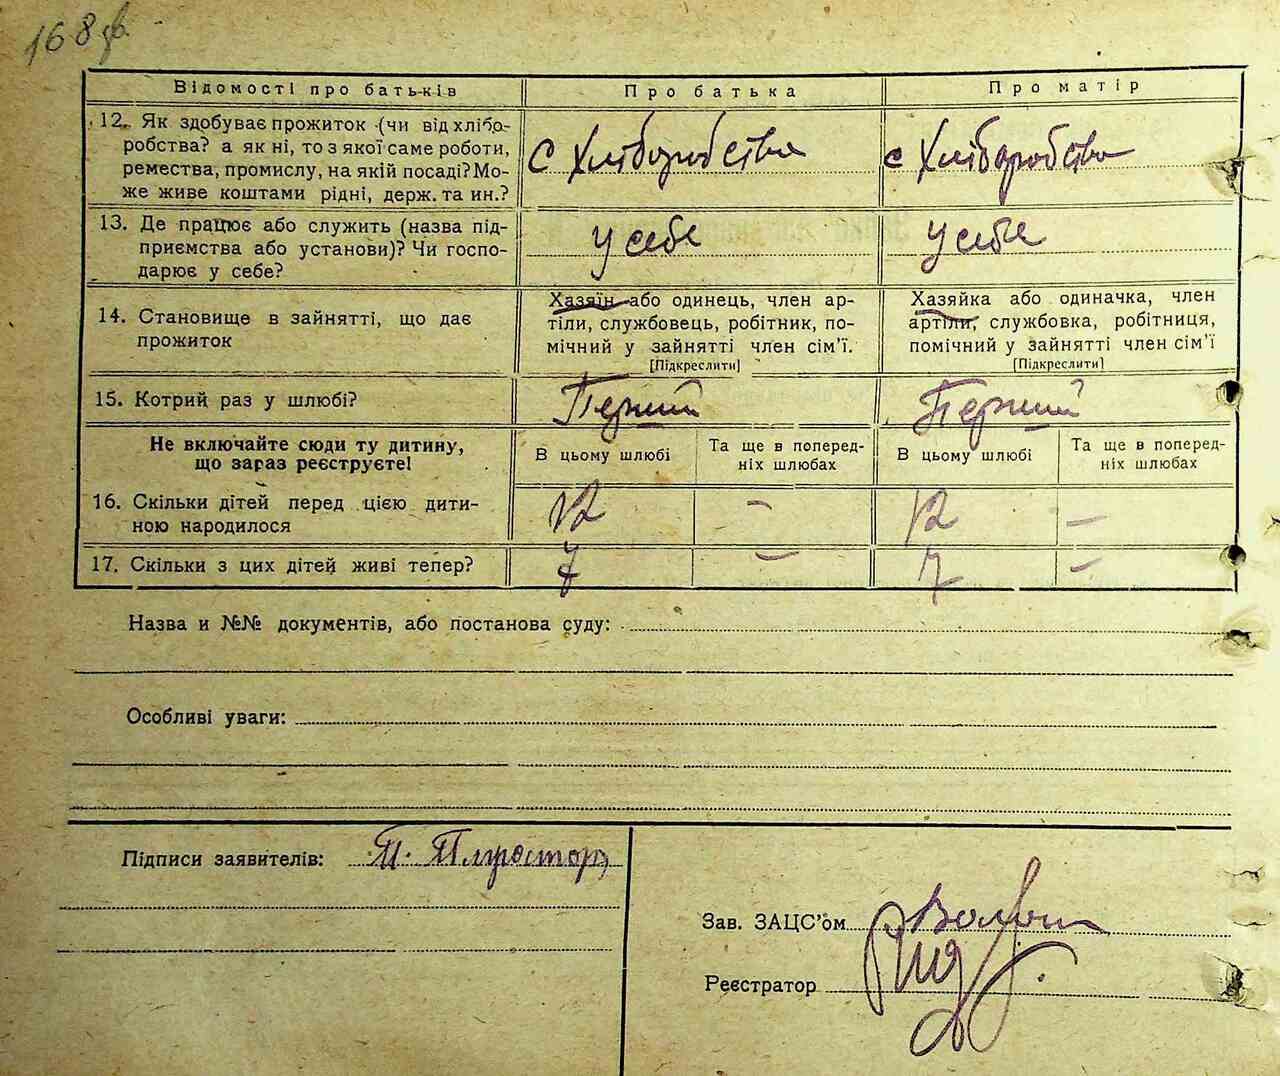 168 зв.
Відомості про батьків
Про батька
Про матір
12. Як здобуває прожиток (чи від хлібо-
робства? а як ні, то з якої саме роботи,
ремества, промислу, на якій посаді? Мо-
же живе коштами рідні, держ. та ин.?
с Хліборобства
с Хліборобства
13. Де працює або служить (назва під-
приємства або установи)? Чи госпо-
дарює у себе?
у себе
у себе
14. Становище в зайнятті, що дає
прожиток
Хазяїн або одинець, член ар-
тіли, службовець, робітник, по-
мічний у зайнятті член сім'ї.
[Підкреслити]
Хазяйка або одиначка, член
артіли, службовка, робітниця,
помічний у зайнятті член сім'ї
[Підкреслити]
15. Котрий раз у шлюбі?
Перший
Перший
Не включайте сюди ту дитину,
що зараз реєструєте!
В цьому шлюбі
Та ще в поперед-
ніх шлюбах
В цьому шлюбі
Та ще в поперед-
ніх шлюбах
16. Скільки дітей перед цією дити-
ною народилося
12
–
12
–
17. Скільки з цих дітей живі тепер?
7
–
7
–
Назва и №№ документів, або постанова суду:
Особливі уваги:
Підписи заявителів: П.
Зав. ЗАЦС'ом
Реєстратор